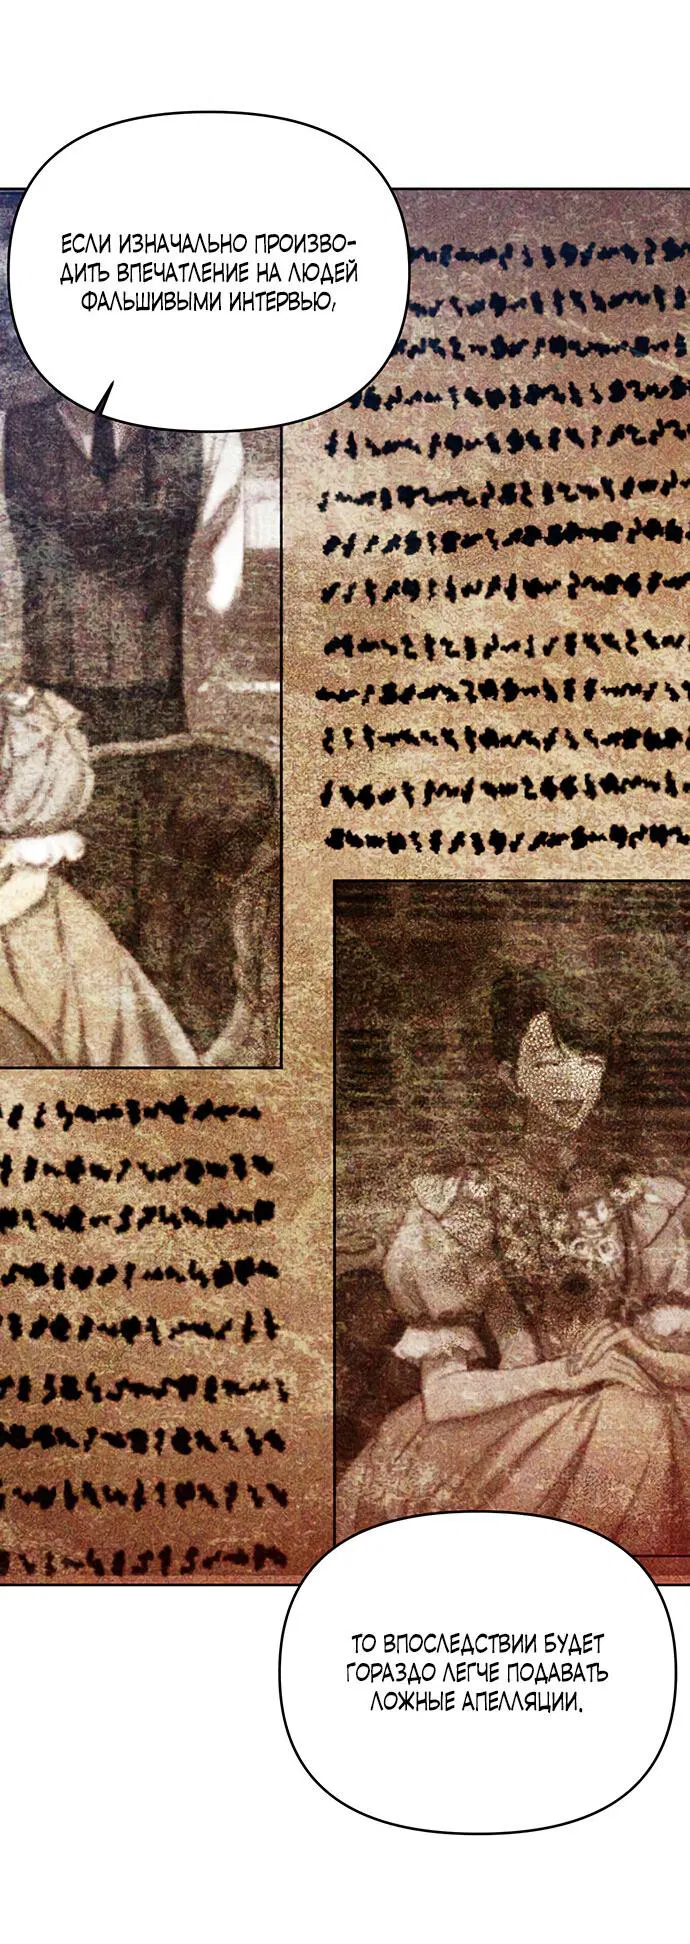 ЕСЛИ ИЗНАЧАЛЬНО ПРОИЗВО-
ДИТЬ ВПЕЧАТЛЕНИЕ НА ЛЮДЕЙ
ФАЛЬШИВЫМИ ИНТЕРВЬЮ,
ТО ВПОСЛЕДСТВИИ БУДЕТ
ГОРАЗДО ЛЕГЧЕ ПОДАВАТЬ
ЛОЖНЫЕ АПЕЛЛЯЦИИ.